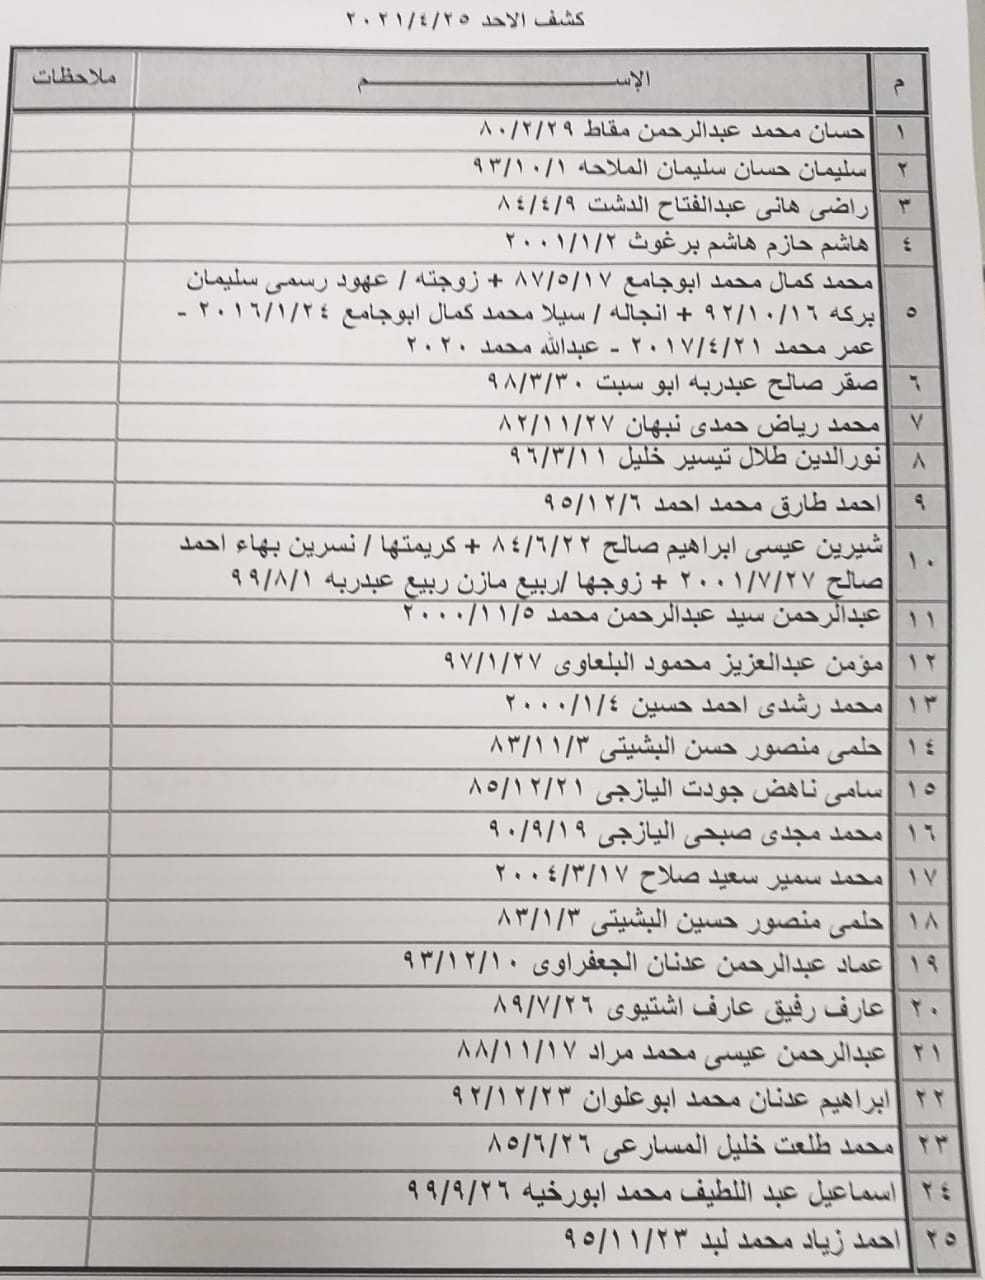 كشف الاحد ٢٠٢١/٤/٢٥
م الإســـــــــم ملاحظات
١ حسان محمد عبدالرحمن مقاط ٨٠/٢/٢٩
٢ سليمان حسان سليمان الملاحه ٩٣/١٠/١
٣ راضى هانى عبدالفتاح الدشت ٨٤/٤/٩
٤ هاشم حازم هاشم برغوث ٢٠٠١/١/٢
٥ محمد كمال محمد ابوجامع ٨٧/٥/١٧ + زوجته / عهود رسمى سليمان
بركه ٩٢/١٠/١٦ + انجاله / سيلا محمد كمال ابوجامع ٢٠١٦/١/٢٤ -
عمر محمد ٢٠١٧/٤/٢١ - عبدالله محمد ٢٠٢٠
٦ صقر صالح عبدربه ابو سبت ٩٨/٣/٣٠
٧ محمد رياض حمدى نبهان ٨٢/١١/٢٧
٨ نورالدين طلال تيسير خليل ٩٦/٣/١١
٩ احمد طارق محمد احمد ٩٥/١٢/٦
١٠ شيرين عيسى ابراهيم صالح ٨٤/٦/٢٢ + كريمتها / نسرين بهاء احمد
صالح ٢٠٠١/٧/٢٧ + زوجها /ربيع مازن ربيع عبدربه ٩٩/٨/١
١١ عبدالرحمن سيد عبدالرحمن محمد ٢٠٠٠/١١/٥
١٢ مؤمن عبدالعزيز محمود البلعاوى ٩٧/١/٢٧
١٣ محمد رشدى احمد حسين ٢٠٠٠/١/٤
١٤ حلمى منصور حسن البشيتى ٨٣/١١/٣
١٥ سامى ناهض جودت اليازجى ٨٥/١٢/٢١
١٦ محمد مجدى صبحى اليازجى ٩٠/٩/١٩
١٧ محمد سمير سعيد صلاح ٢٠٠٤/٣/١٧
١٨ حلمى منصور حسين البشيتى ٨٣/١/٣
١٩ عماد عبدالرحمن عدنان الجعفراوى ٩٣/١٢/١٠
٢٠ عارف رفيق عارف اشتيوى ٨٩/٧/٢٦
٢١ عبدالرحمن عيسى محمد مراد ٨٨/١١/١٧
٢٢ ابراهيم عدنان محمد ابوعلوان ٩٢/١٢/٢٣
٢٣ محمد طلعت خليل المسارعى ٨٥/٦/٢٦
٢٤ اسماعيل عبد اللطيف محمد ابورخيه ٩٩/٩/٢٦
٢٥ احمد زياد محمد لبد ٩٥/١١/٢٣